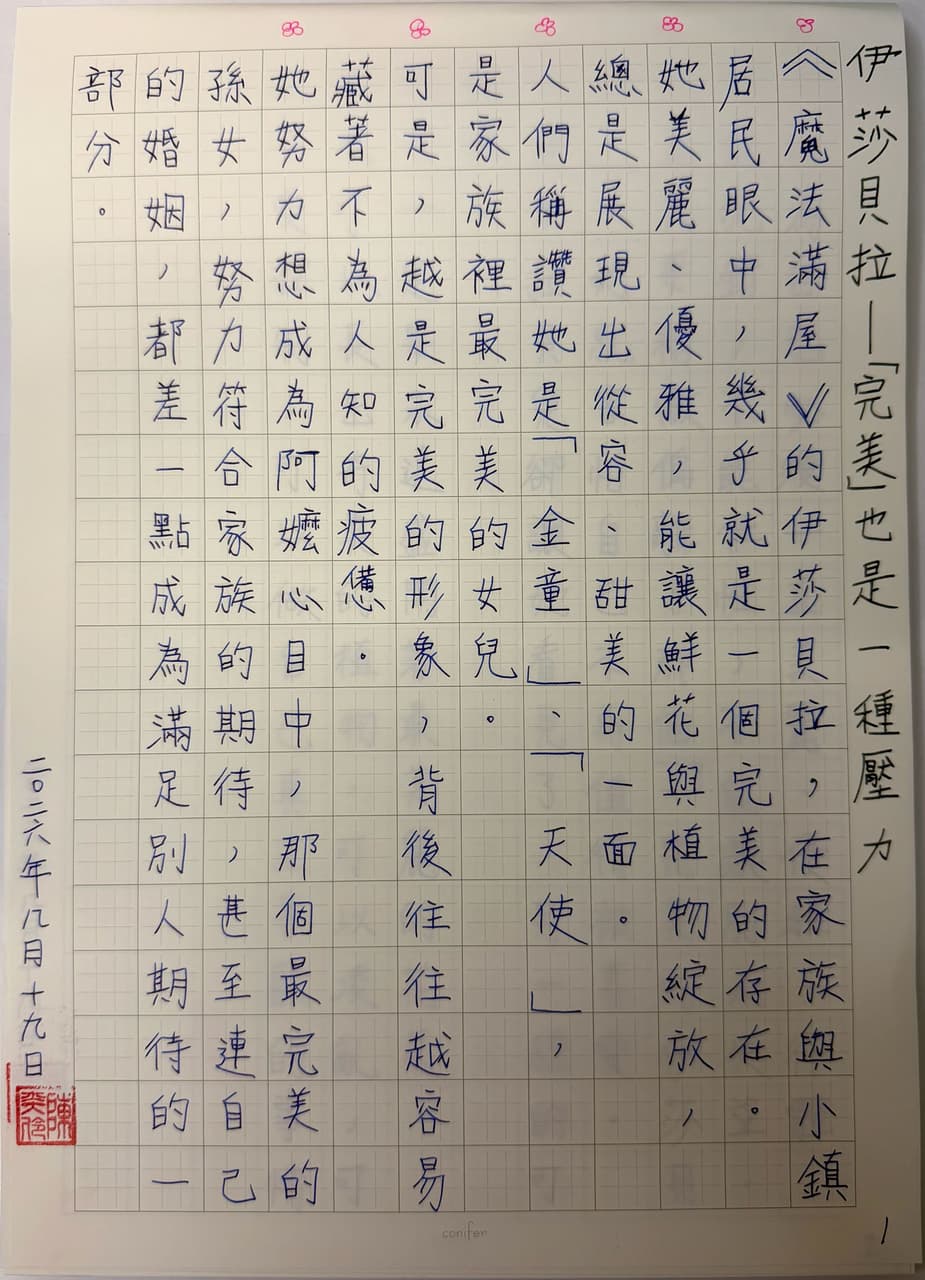 伊莎貝拉—「完美」也是一種壓力
《魔法滿屋》的伊莎貝拉，在家族與小鎮
居民眼中，幾乎就是一個完美的存在。
她美麗、優雅，能讓鮮花與植物綻放，
總是展現出從容、甜美的一面。
人們稱讚她是「金童」、「天使」，
是家族裡最完美的女兒。
可是，越是完美的形象，背後往往越容易
藏著不為人知的疲憊。
她努力想成為阿嬤心目中，那個最完美的
孫女，努力符合家族的期待，甚至連自己
的婚姻，都差一點成為滿足別人期待的一
部分。
二〇二六年八月十九日
1
conifer